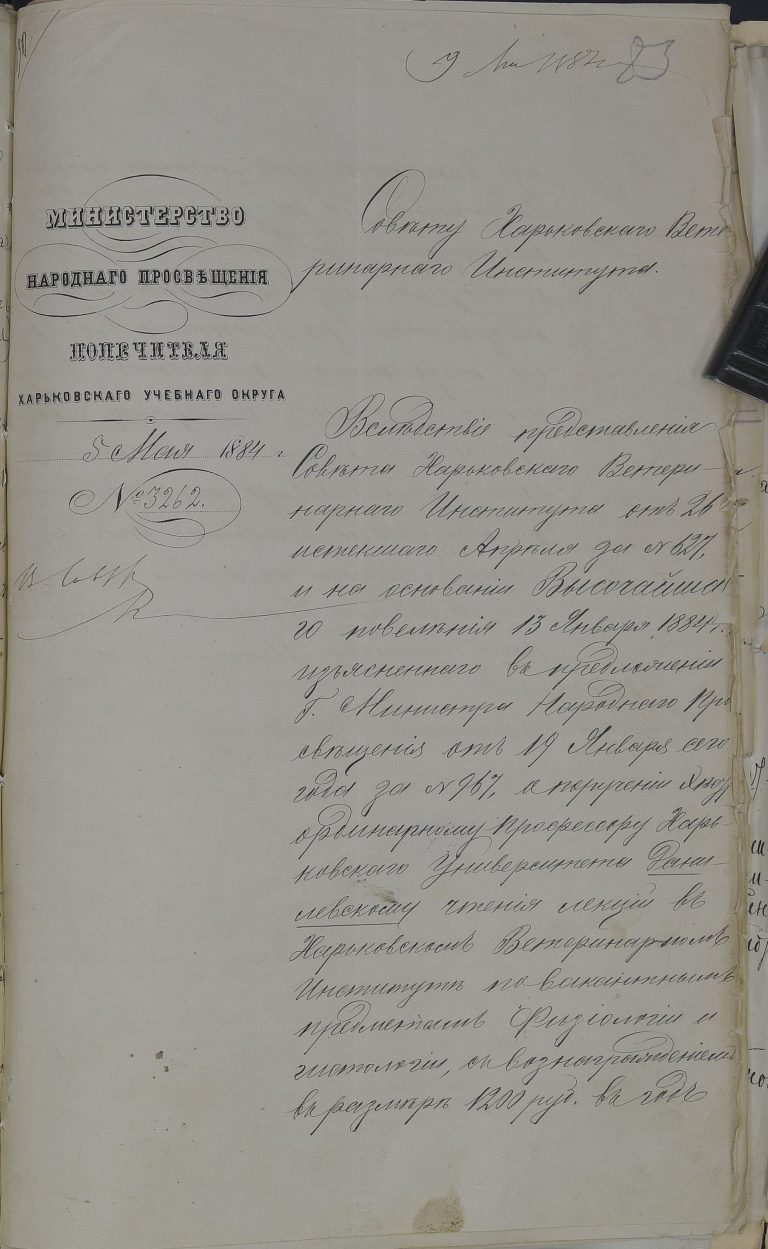 9
83
МИНИСТЕРСТВО
НАРОДНАГО ПРОСВѢЩЕНІЯ
ПОПЕЧИТЕЛЯ
ХАРЬКОВСКАГО УЧЕБНАГО ОКРУГА
5 Мая 1884 г.
№ 3262.
Совѣту Харьковскаго Вете
ринарнаго Института.
Вслѣдствіе представленія
Совѣта Харьковскаго Ветери-
нарнаго Института отъ 26
истекшаго Апрѣля за № 627,
и на основаніи Высочайша
го повелѣнія 13 Января 1884 г.,
изъясненнаго въ предложеніи
Г. Министра Народнаго Про
свѣщенія отъ 19 Января сего
года за № 967, я поручилъ Экстра
ординарному профессору Харь-
ковскаго Университета Дани-
левскому чтенія лекцій въ
Харьковскомъ Ветеринарномъ
Институтѣ по вакантнымъ
предметамъ Физіологіи и
гистологіи, съ вознагражденіемъ
въ размѣрѣ 1200 руб. въ годъ